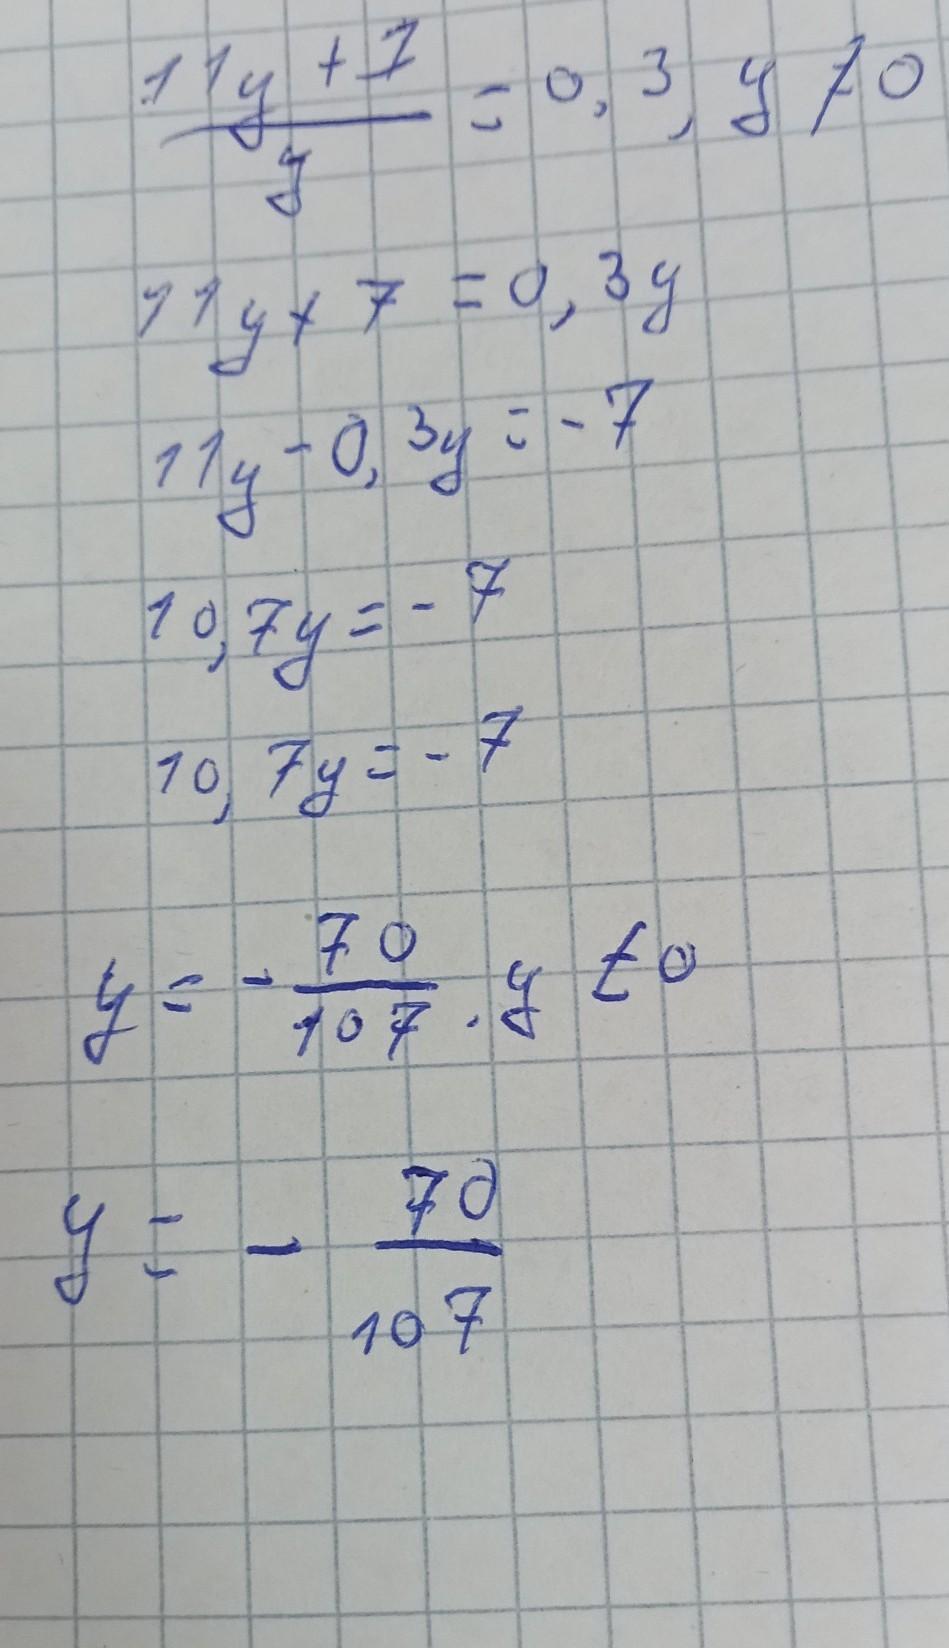 11y + 7
y
= 0,3, y ≠ 0
11y + 7 = 0,3y
11y - 0,3y = -7
10,7y = -7
10,7y = -7
y = - 70/107 . y ≠ 0
y = - 70/107